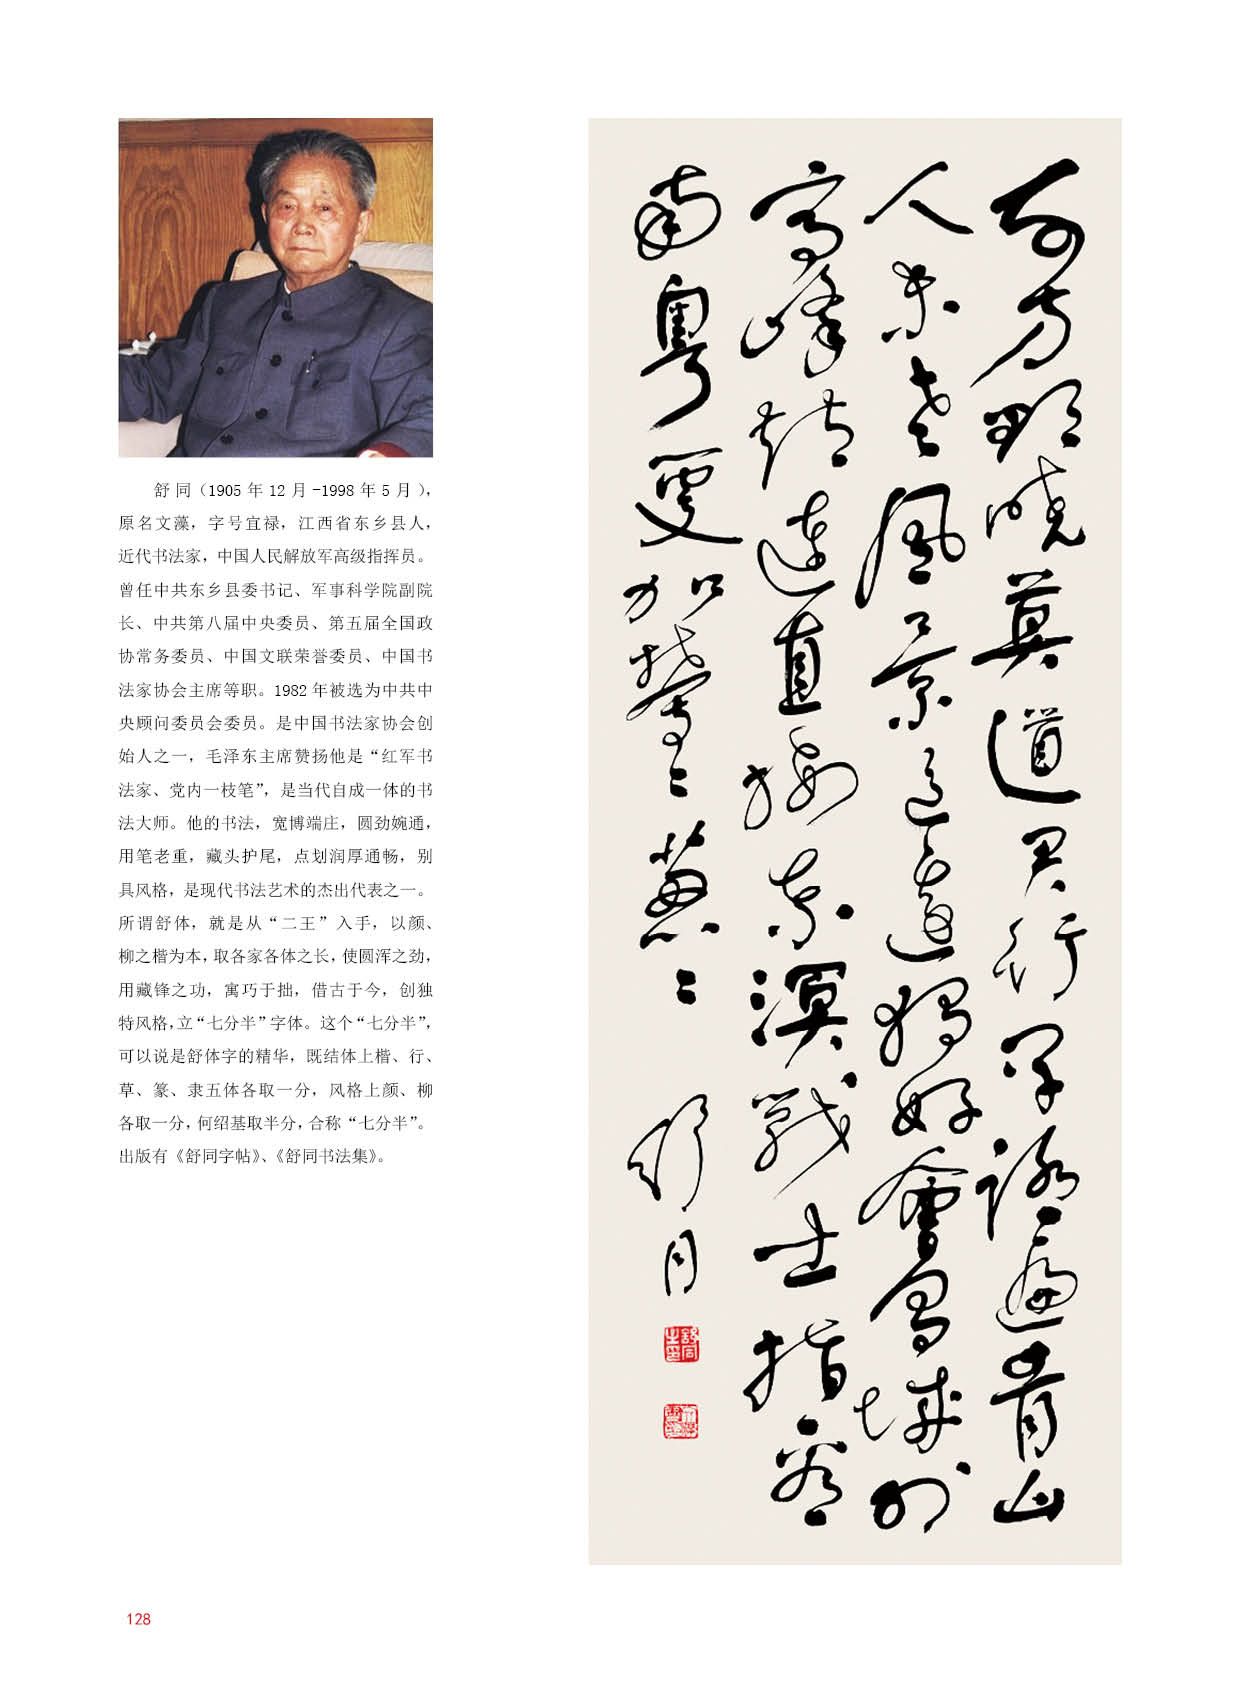 舒同（1905年12月-1998年5月），
原名文藻，字号宜禄，江西省东乡县人，
近代书法家，中国人民解放军高级指挥员。
曾任中共东乡县委书记、军事科学院副院
长、中共第八届中央委员、第五届全国政
协常务委员、中国文联荣誉委员、中国书
法家协会主席等职。1982年被选为中共中
央顾问委员会委员。是中国书法家协会创
始人之一，毛泽东主席赞扬他是“红军书
法家、党内一枝笔”，是当代自成一体的书
法大师。他的书法，宽博端庄，圆劲婉通，
用笔老重，藏头护尾，点划润厚通畅，别
具风格，是现代书法艺术的杰出代表之一。
所谓舒体，就是从“二王”入手，以颜、
柳之楷为本，取各家各体之长，使圆浑之劲，
用藏锋之功，寓巧于拙，借古于今，创独
特风格，立“七分半”字体。这个“七分半”，
可以说是舒体字的精华，既结体上楷、行、
草、篆、隶五体各取一分，风格上颜、柳
各取一分，何绍基取半分，合称“七分半”。
出版有《舒同字帖》、《舒同书法集》。
东方欲晓莫道君行早踏遍青山
人未老风景这边独好會昌城外
高峰颠连直接东溟戰士指看
南粤更加郁〻葱〻
舒同
舒同之印
128